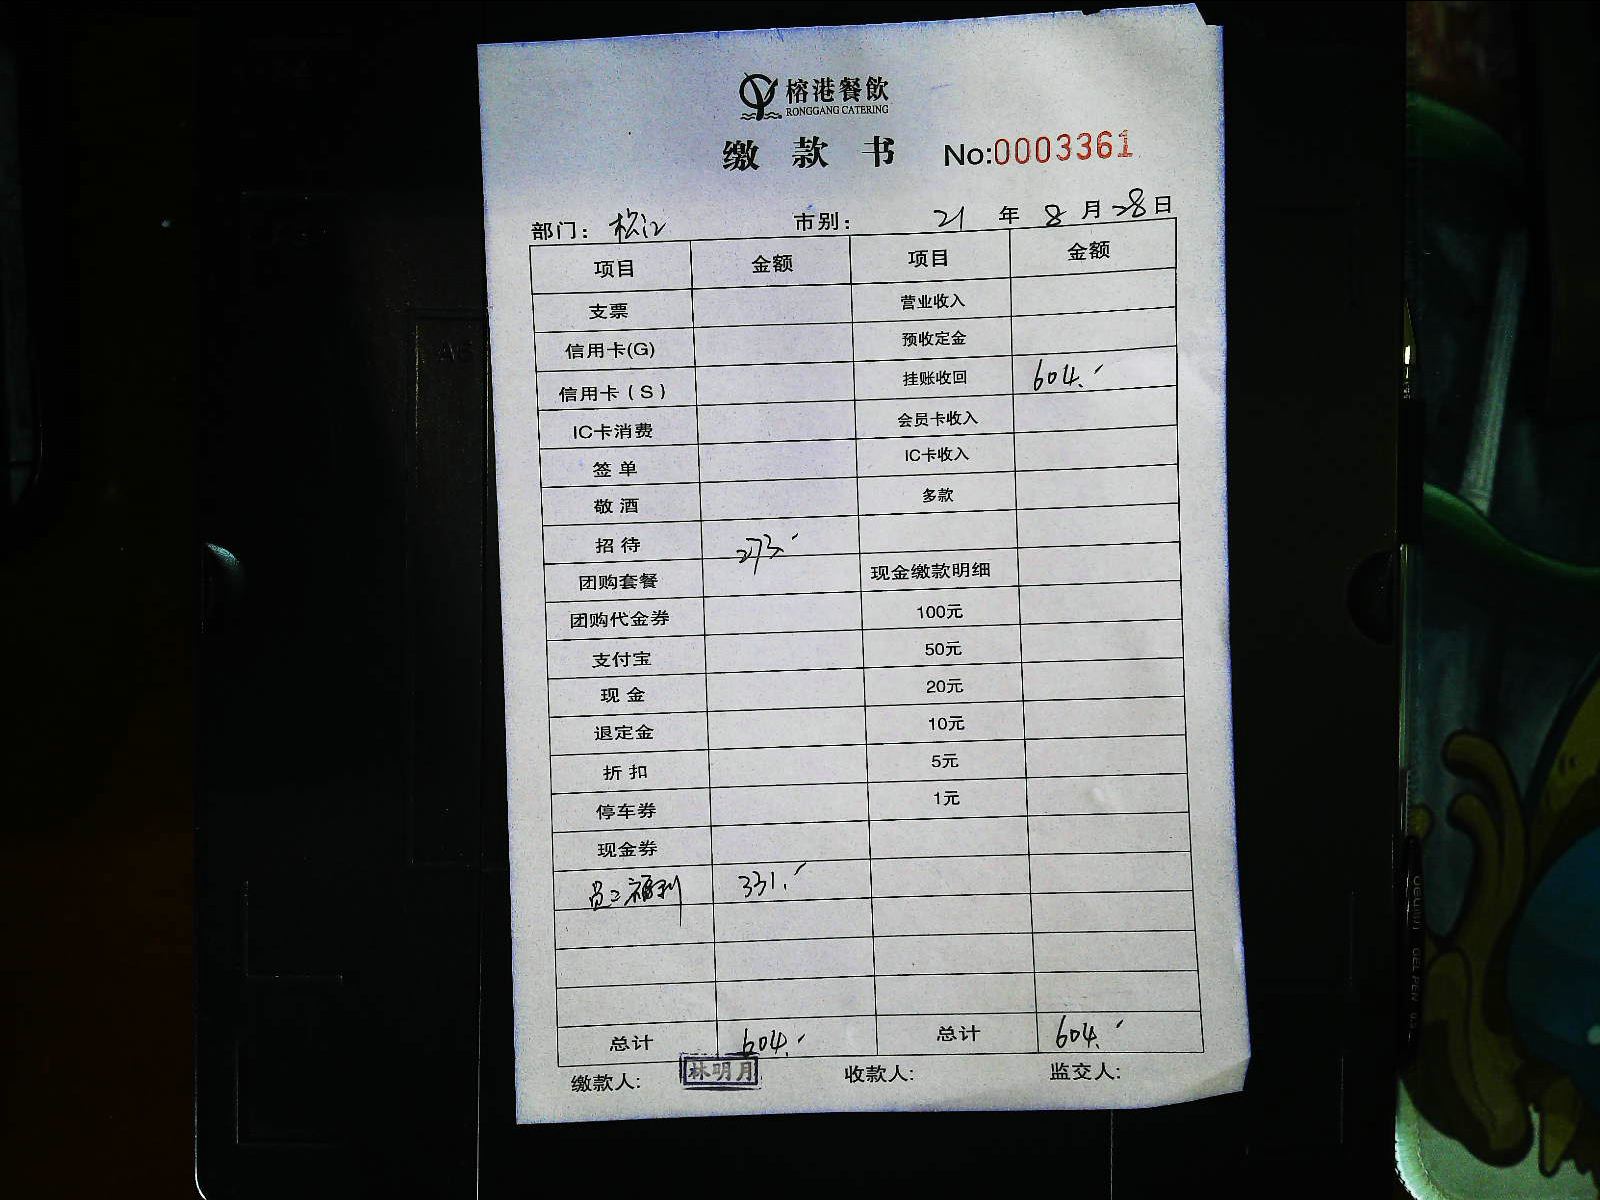 榕港餐飲
RONGGANG CATERING
缴款书 No:0003361
部门: 松江 市别: 21年8月28日
项目 金额 项目 金额
支票 营业收入
信用卡(G) 预收定金
信用卡(S) 挂账收回 604.-
IC卡消费 会员卡收入
签单 IC卡收入
敬酒 多款
招待 273.-
团购套餐 现金缴款明细
团购代金券 100元
支付宝 50元
现金 20元
退定金 10元
折扣 5元
停车券 1元
现金券
员工福利 331.-
总计 604.- 总计 604.-
缴款人: 林明月 收款人: 监交人: